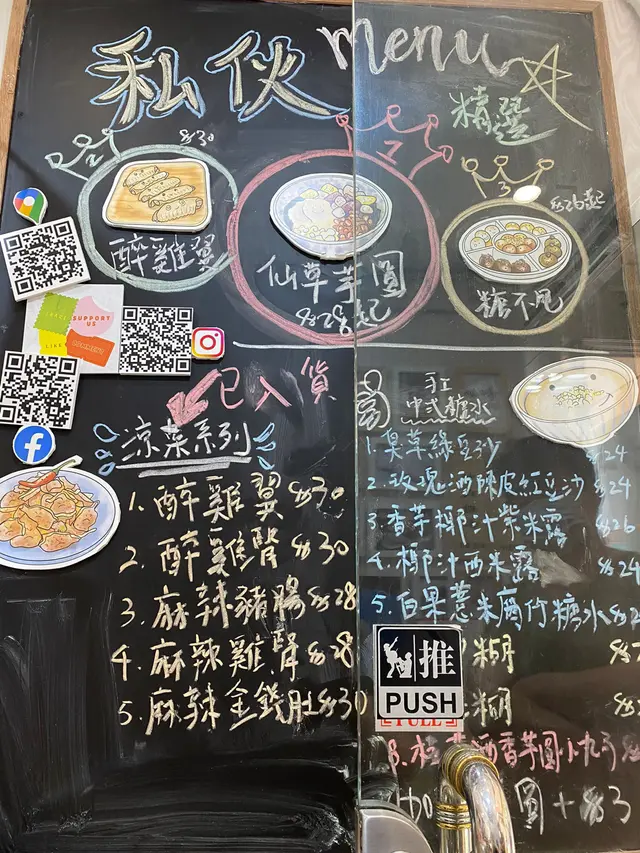 私伙 menu
精選
2
$30
醉雞翼
1
仙草芋圓
$28起
3
糖不甩
SUPPORT
US
LIKE
COMMENT
已入貨
涼菜系列
1. 醉雞翼 $30
2. 醉雞腎 $30
3. 麻辣豬腸 $28
4. 麻辣雞腎 $28
5. 麻辣金錢肚 $30
手工
中式糖水
1. 臭草綠豆沙 $24
2. 玫瑰酒陳皮紅豆沙 $24
3. 香芋椰汁紫米露 $26
4. 椰汁西米露 $24
5. 白果薏米腐竹糖水
糊
糊
推
PUSH
8. 酒香芋圓小丸子
圓 + $3